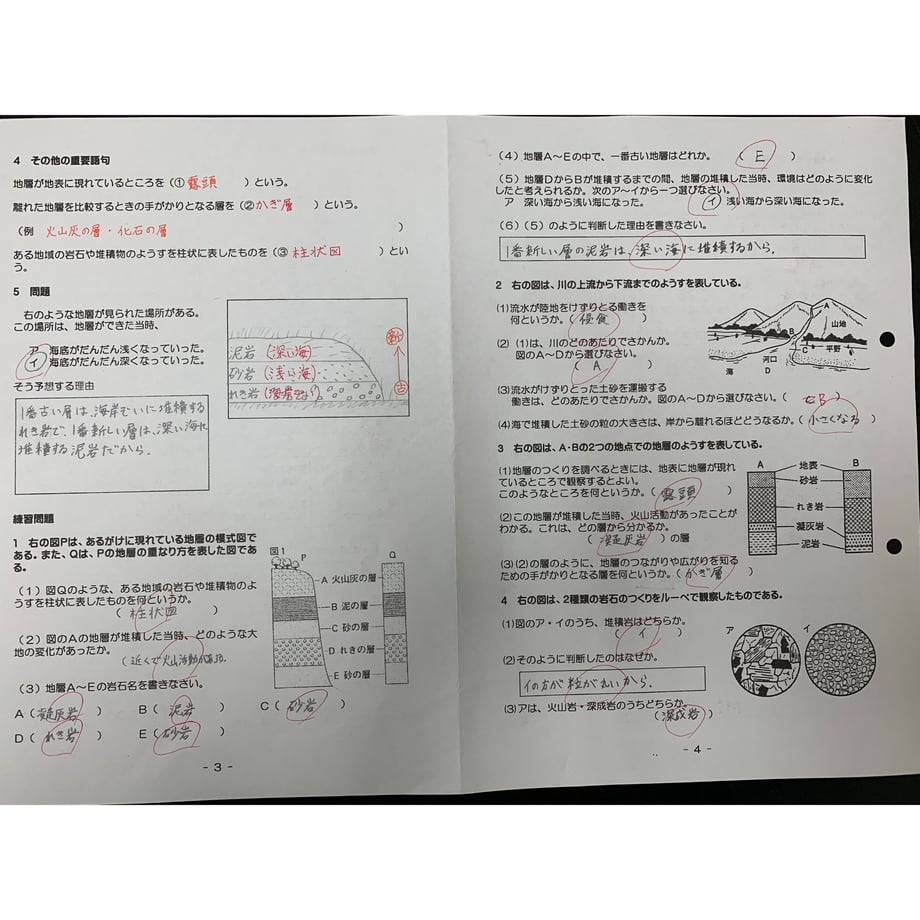 4 その他の重要語句
地層が地表に現れているところを(① 露頭 )という。
離れた地層を比較するときの手がかりとなる層を(② かぎ層 )という。
(例 火山灰の層・化石の層 )
ある地域の岩石や堆積物のようすを柱状に表したものを(③ 柱状図 )とい
う。
5 問題
右のような地層が見られた場所がある。
この場所は、地層ができた当時、
ア 海底がだんだん浅くなっていった。
イ 海底がだんだん深くなっていった。
そう予想する理由
1番古い層は、海岸ぞいに堆積する
れき岩で、1番新しい層は、深い海に
堆積する泥岩だから。
泥岩 (深い海)
砂岩 (浅い海)
れき岩 (海岸ぞい)
新
古
練習問題
1 右の図Pは、あるがけに現れている地層の模式図で
ある。また、Qは、Pの地層の重なり方を表した図であ
る。
(1)図Qのような、ある地域の岩石や堆積物のよ
うすを柱状に表したものを何というか。
( 柱状図 )
(2)図のAの地層が堆積した当時、どのような大
地の変化があったか。
(近くで火山活動があった。
(3)地層A～Eの岩石名を書きなさい。
A( 凝灰岩 ) B( 泥岩 ) C( 砂岩 )
D( れき岩 ) E( 砂岩 )
図1
P
Q
A 火山灰の層
B 泥の層
C 砂の層
D れきの層
E 砂の層
- 3 -
(4)地層A～Eの中で、一番古い地層はどれか。 ( E )
(5)地層DからBが堆積するまでの間、地層の堆積した当時、環境はどのように変化
したと考えられるか。次のア～イから一つ選びなさい。
ア 深い海から浅い海になった。 イ 浅い海から深い海になった。
(6)(5)のように判断した理由を書きなさい。
1番新しい層の泥岩は、深い海に堆積するから。
2 右の図は、川の上流から下流までのようすを表している。
(1)流水が陸地をけずりとる働きを
何というか。( 侵食 )
(2) (1)は、川のどのあたりでさかんか。
図のA～Dから選びなさい。
( A )
(3)流水がけずりとった土砂を運搬する
働きは、どのあたりでさかんか。図のA～Dから選びなさい。 ( B )
(4)海で堆積した土砂の粒の大きさは、岸から離れるほどどうなるか。( 小さくなる )
A
山地
B
平野
C
河口
海
D
3 右の図は、A・Bの2つの地点での地層のようすを表している。
(1)地層のつくりを調べるときには、地表に地層が現れ
ているところで観察するとよい。
このようなところを何というか。( 露頭 )
(2)この地層が堆積した当時、火山活動があったことが
わかる。これは、どの層から分かるか。
( 凝灰岩 )の層
(3)(2)の層のように、地層のつながりや広がりを知る
ための手がかりとなる層を何というか。( かぎ層 )
A
B
地表
砂岩
れき岩
凝灰岩
泥岩
4 右の図は、2種類の岩石のつくりをルーペで観察したものである。
(1)図のア・イのうち、堆積岩はどちらか。
( イ )
(2)そのように判断したのはなぜか。
イの方が粒が丸いから。
(3)アは、火山岩・深成岩のうちどちらか。
(深成岩)
ア
イ
- 4 -